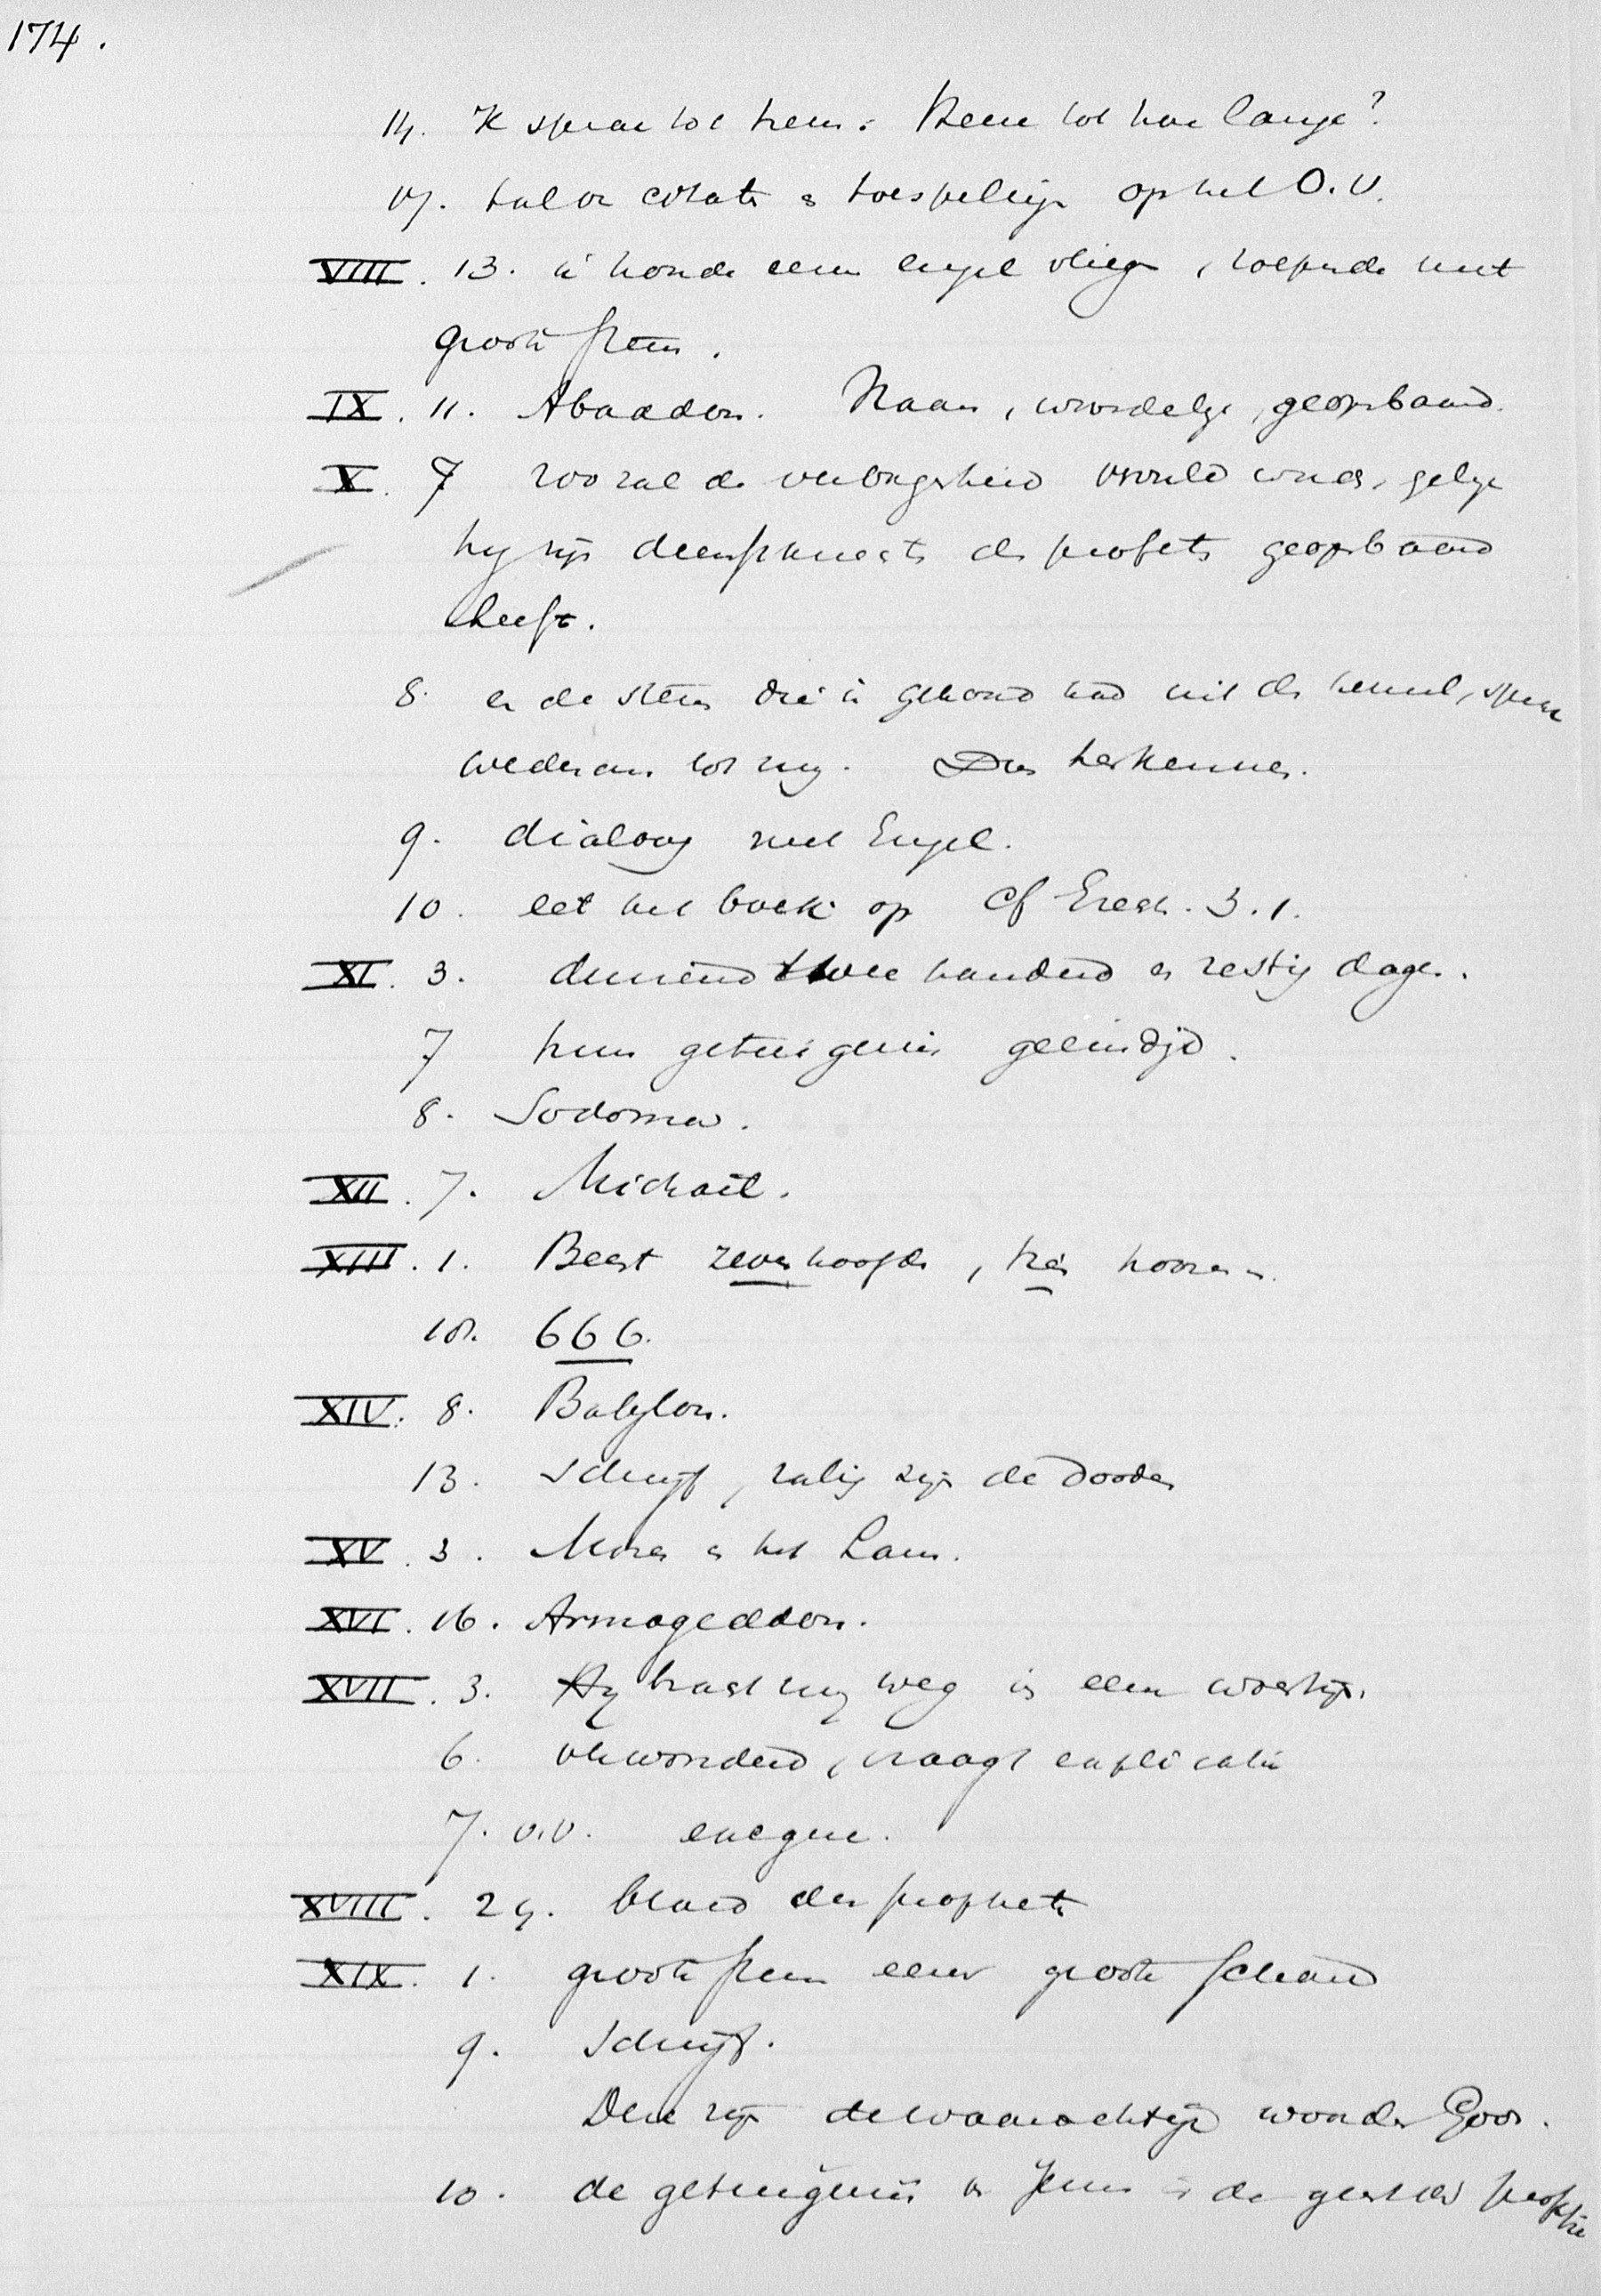 174.
14. Ik sprak tot hem: Heer tot hoe lange?
17. tal van citaten & toespelingen op het O.V.
VIII. 13. ik hoorde een engel vliegen, roepende met
groote stem.
IX. 11. Abaddon. Naam, woordelijk, geopenbaard.
X. 7 zoo zal de verborgenheid vervuld worden, gelijk
hij zijn dienstknechten de profeten geopenbaard
heeft.
8. en de stem die ik gehoord had uit de hemel, sprak
wederom tot mij. Dus herkennen.
9. dialoog met Engel.
10. eet het boek op Cf Ezech. 3.1.
XI. 3. duizend twee honderd en zestig dagen.
7 hun getuigenis geeindigd.
8. Sodoma.
XII. 7. Michaël.
XIII. 1. Beest zeven hoofden, tien hoornen.
18. 666.
XIV. 8. Babylon.
13. Schrijf, zalig zijn de dooden
XV. 3. Mozes en het Lam.
XVI. 16. Armageddon.
XVII. 3. Hij bracht mij weg in een woestijn.
6. verwonderd, vraagt explicatie
7. v.v. exegese.
XVIII. 24. bloed der propheten
XIX. 1. groote stem eener groote schaar
9. Schrijf.
Deze zijn de waarachtige woorden Gods.
10. de getuigenis van Jezus is de geest der profetie